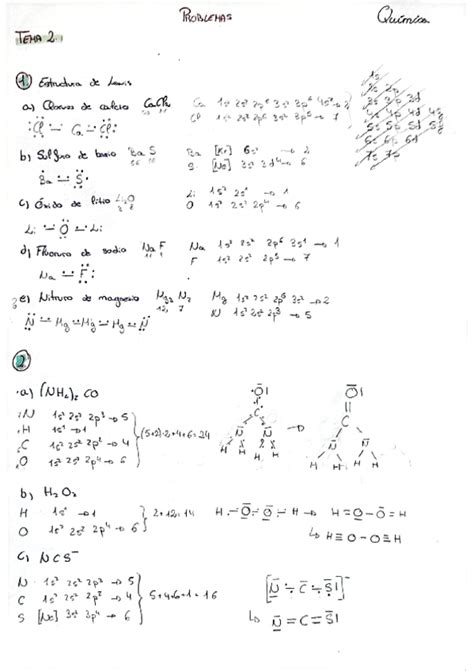 PROBLEMAS Química
TEMA 2
1 Estructura de Lewis
a) Cloruro de calcio CaCl2 Ca 1s² 2s² 2p⁶ 3s² 3p⁶ 4s² → 2
Cl 1s² 2s² 2p⁶ 3s² 3p⁵ → 7
Cl Ca Cl
b) Sulfuro de bario BaS Ba [Kr] 6s² → 2
S [Ne] 3s² 3p⁴ → 6
Ba S
c) Óxido de litio Li2O Li 1s² 2s¹ → 1
O 1s² 2s² 2p⁴ → 6
Li O Li
d) Fluoruro de sodio NaF Na 1s² 2s² 2p⁶ 3s¹ → 1
F 1s² 2s² 2p⁵ → 7
Na F
e) Nitruro de magnesio Mg3 N2 Mg 1s² 2s² 2p⁶ 3s² → 2
N 1s² 2s² 2p³ → 5
N Mg Mg Mg N
2
a) (NH2)2 CO
N 1s² 2s² 2p³ → 5
H 1s¹ → 1
C 1s² 2s² 2p² → 4
O 1s² 2s² 2p⁴ → 6
(5+2)·2+4+6=24
b) H2O2
H 1s¹ → 1
O 1s² 2s² 2p⁴ → 6
2+12=14
H O O H → H = O - O = H
H ≡ O - O ≡ H
c) NCS⁻
N 1s² 2s² 2p³ → 5
C 1s² 2s² 2p² → 4
S [Ne] 3s² 3p⁴ → 6
5+4+6+1=16
[N C S]⁻
N = C = S